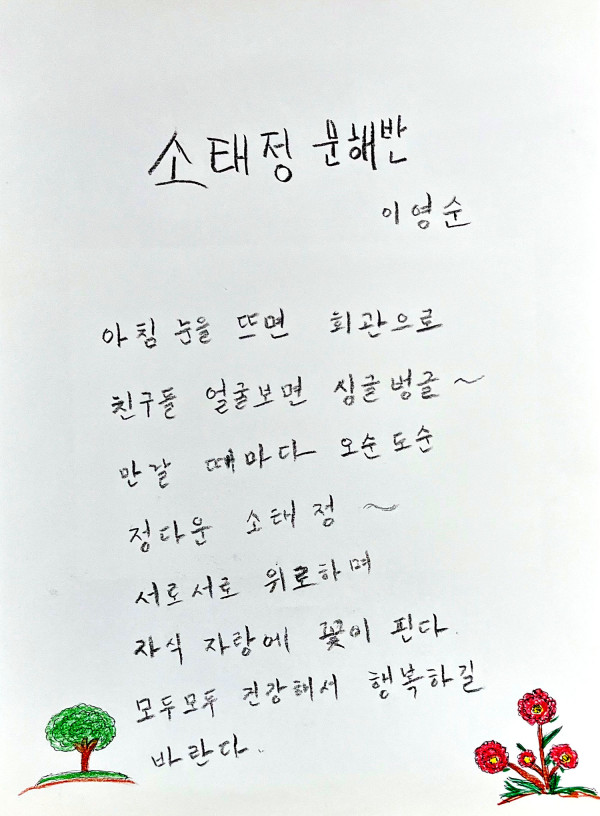 소태정 문해반
이영순
아침 눈을 뜨면 회관으로
친구들 얼굴보면 싱글벙글~
만날 때마다 오순도순
정다운 소태정~
서로서로 위로하며
자식 자랑에 꽃이 핀다.
모두모두 건강해서 행복하길
바란다.